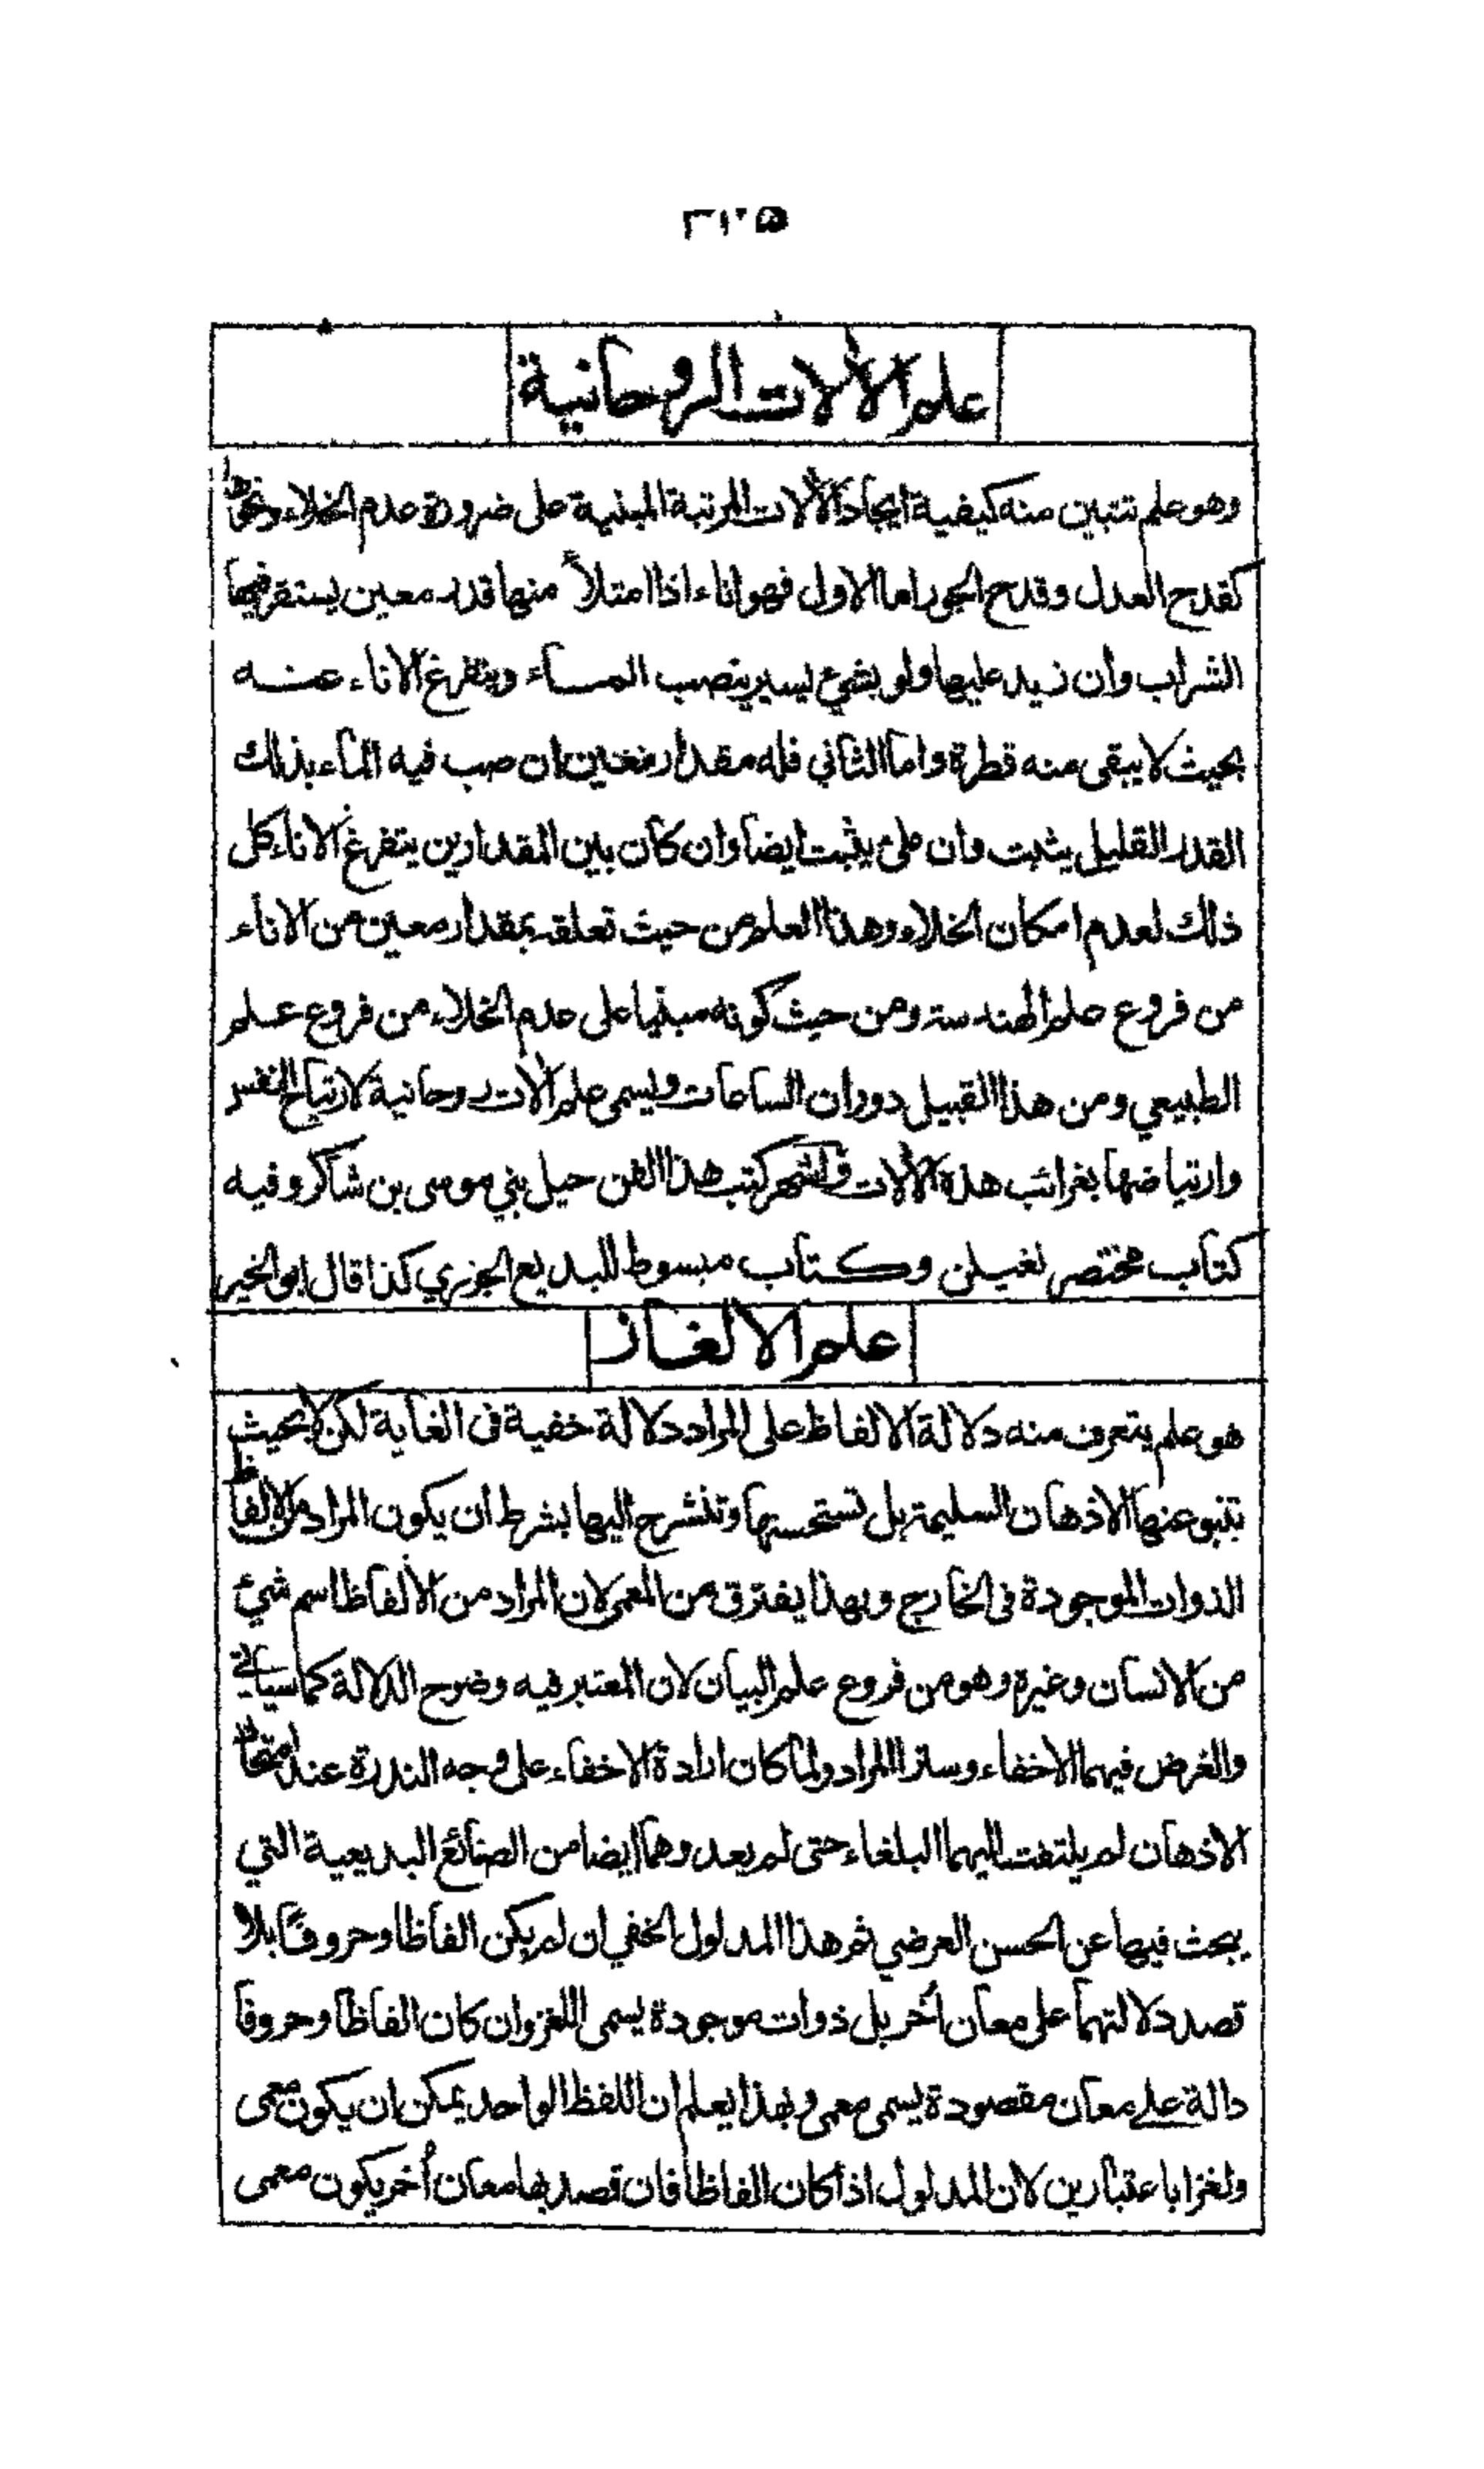 علم الآلات الروحانية
وهو علم تتبين منه كيفية ايجاد الآلات المرتبة المبنية على ضرورة عدم الخلاء ونحوها
كقدح العدل وقدح الجور اما الاول فهو اناء اذا امتلأ منها قدر معين يستقر فيها
الشراب وان زيد عليها ولو بشيء يسير ينصب المـاء ويتفرغ الاناء عنـه
بحيث لا يبقى منه قطرة واما الثاني فله مقدار معين ان صب فيه الماء بذلك
القدر القليل يثبت وان ملئ يثبت ايضا وان كان بين المقدارين يتفرغ الاناء كل
ذلك لعدم امكان الخلاء وهذا العلم من حيث تعلقه بمقدار معين من الاناء
من فروع علم الهندسة ومن حيث كونه مبنيا على عدم الخلاء من فروع علم
الطبيعي ومن هذا القبيل دوران الساعات ويسمى علم آلات روحانية لارتياح النفس
وارتياضها بغرائب هذه الآلات واشهر كتب هذا الفن حيل بني موسى بن شاكر وفيه
كتاب مختصر لفيلن وكتاب مبسوط للبديع الجزري كذا قال ابو الخير
علم الالغاز
هو علم يتعرف منه دلالة الالفاظ على المراد دلالة خفية في الغاية لكن لا بحيث
تنبو عنها الاذهان السليمة بل تستحسنها وتنشرح اليها بشرط ان يكون المراد من الالفاظ
الذوات الموجودة في الخارج وبهذا يفترق من المعمى لان المراد من الألفاظ اسم شيء
من الانسان وغيره وهو من فروع علم البيان لان المعتبر فيه وضوح الدلالة كما سيأتي
والغرض فيهما الاخفاء وستر المراد ولما كان ارادة الاخفاء على وجه الندرة عند امتحان
الاذهان لم يلتفت اليهما البلغاء حتى لم يعد وهما ايضا من الصنائع البديعية التي
يبحث فيها عن الحسن العرضي ثم هذا المدلول الخفي ان لم يكن الفاظا وحروفًا بلا
قصد دلالتهما على معان أخر بل ذوات موجودة يسمى اللغز وان كان الفاظا وحروفا
دالة على معان مقصودة يسمى معمى وبهذا يعلم ان اللفظ الواحد يمكن ان يكون معمى
ولغزا باعتبارين لان المدلول اذا كان الفاظا فان قصد بها معان أُخر يكون معمى